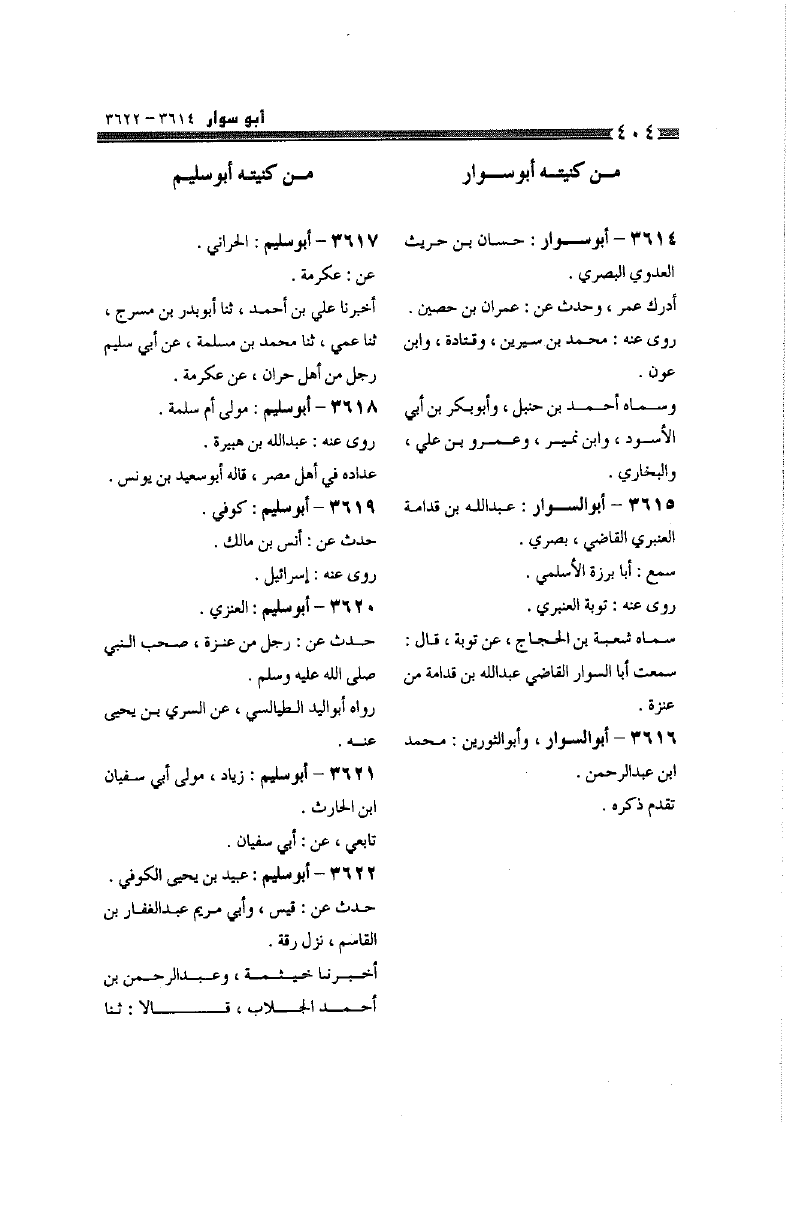 أبو سوار ٣٦١٤ - ٣٦٢٢
٤٠٤
من كنيته أبو سوار
٣٦١٤ - أبو سوار : حسان بن حريث
العدوي البصري .
أدرك عمر ، وحدث عن : عمران بن حصين .
روى عنه : محمد بن سيرين ، وقتادة ، وابن
عون .
وسماه أحمد بن حنبل ، وأبو بكر بن أبي
الأسود ، وابن نمير ، وعمرو بن علي ،
والبخاري .
٣٦١٥ - أبو السوار : عبدالله بن قدامة
العنبري القاضي ، بصري .
سمع : أبا برزة الأسلمي .
روى عنه : توبة العنبري .
سماه شعبة بن الحجاج ، عن توبة ، قال :
سمعت أبا السوار القاضي عبدالله بن قدامة من
عنزة .
٣٦١٦ - أبو السوار ، وأبو الثورين : محمد
ابن عبدالرحمن .
تقدم ذكره .
من كنيته أبو سليم
٣٦١٧ - أبو سليم : الحراني .
عن : عكرمة .
أخبرنا علي بن أحمد ، ثنا أبو بدر بن مسرح ،
ثنا عمي ، ثنا محمد بن مسلمة ، عن أبي سليم
رجل من أهل حران ، عن عكرمة .
٣٦١٨ - أبو سليم : مولى أم سلمة .
روى عنه : عبدالله بن هبيرة .
عداده في أهل مصر ، قاله أبو سعيد بن يونس .
٣٦١٩ - أبو سليم : كوفي .
حدث عن : أنس بن مالك .
روى عنه : إسرائيل .
٣٦٢٠ - أبو سليم : العنزي .
حدث عن : رجل من عنزة ، صحب النبي
صلى الله عليه وسلم .
رواه أبو اليد الطيالسي ، عن السري بن يحيى
عنه .
٣٦٢١ - أبو سليم : زياد ، مولى أبي سفيان
ابن الحارث .
تابعي ، عن : أبي سفيان .
٣٦٢٢ - أبو سليم : عبيد بن يحيى الكوفي .
حدث عن : قيس ، وأبي مريم عبدالغفار بن
القاسم ، نزل رقة .
أخبرنا خيثمة ، وعبدالرحمن بن
أحمد الجلاب ، قالا : ثنا